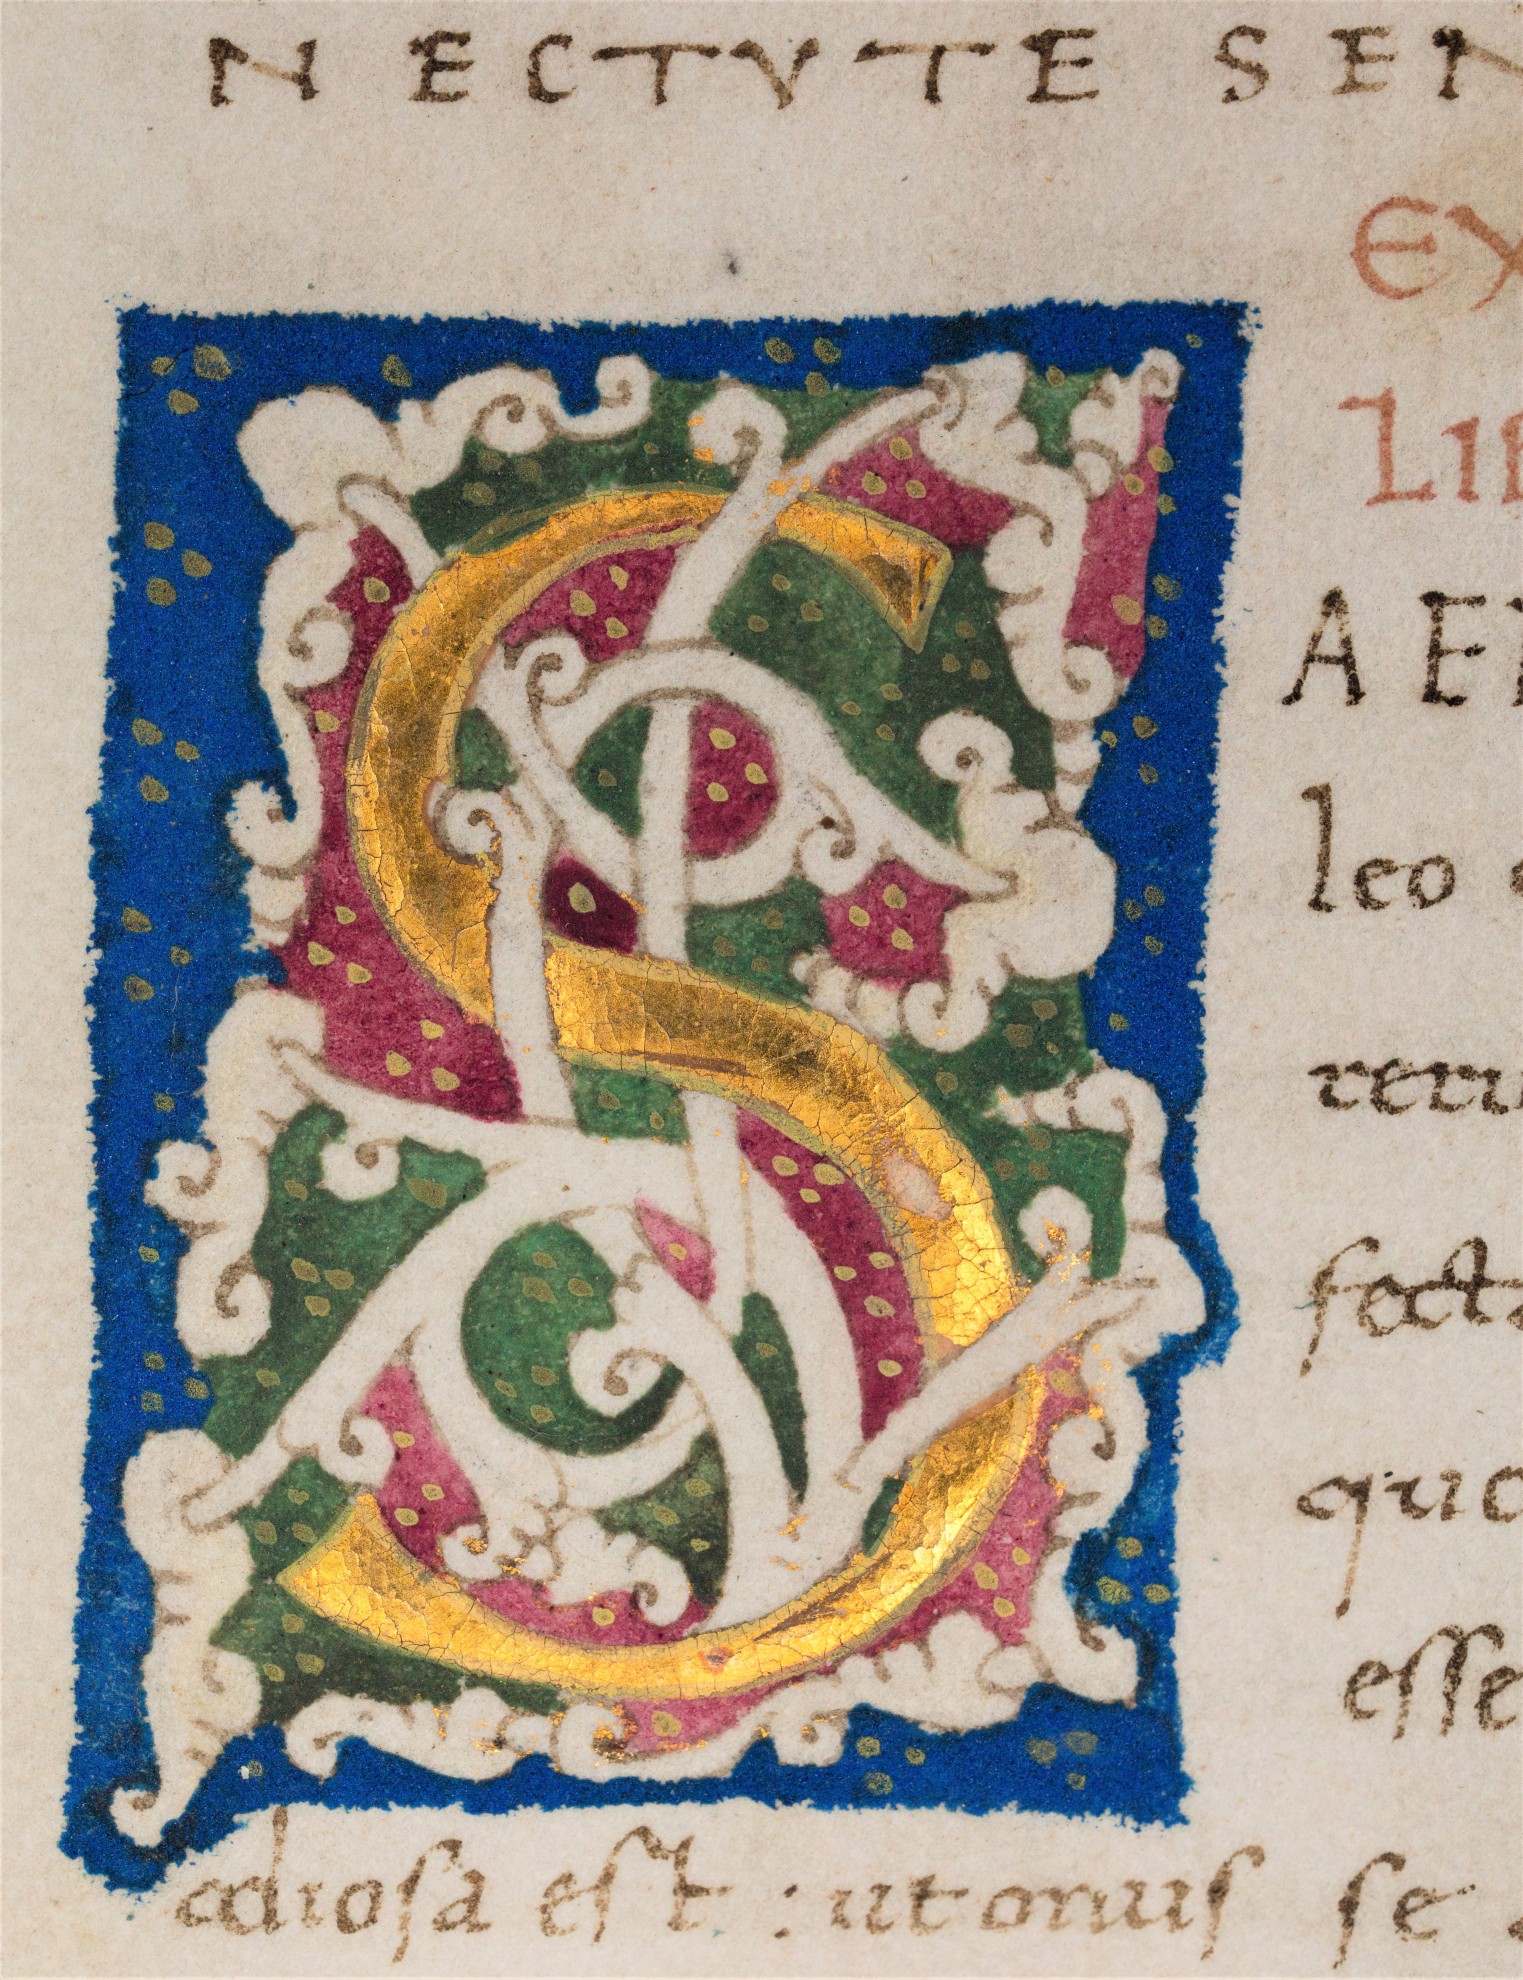 NECTVTE SEN
EX
LIB
S AE
leo
reru
fecta
quo
esse
odiosa est : ut onus se